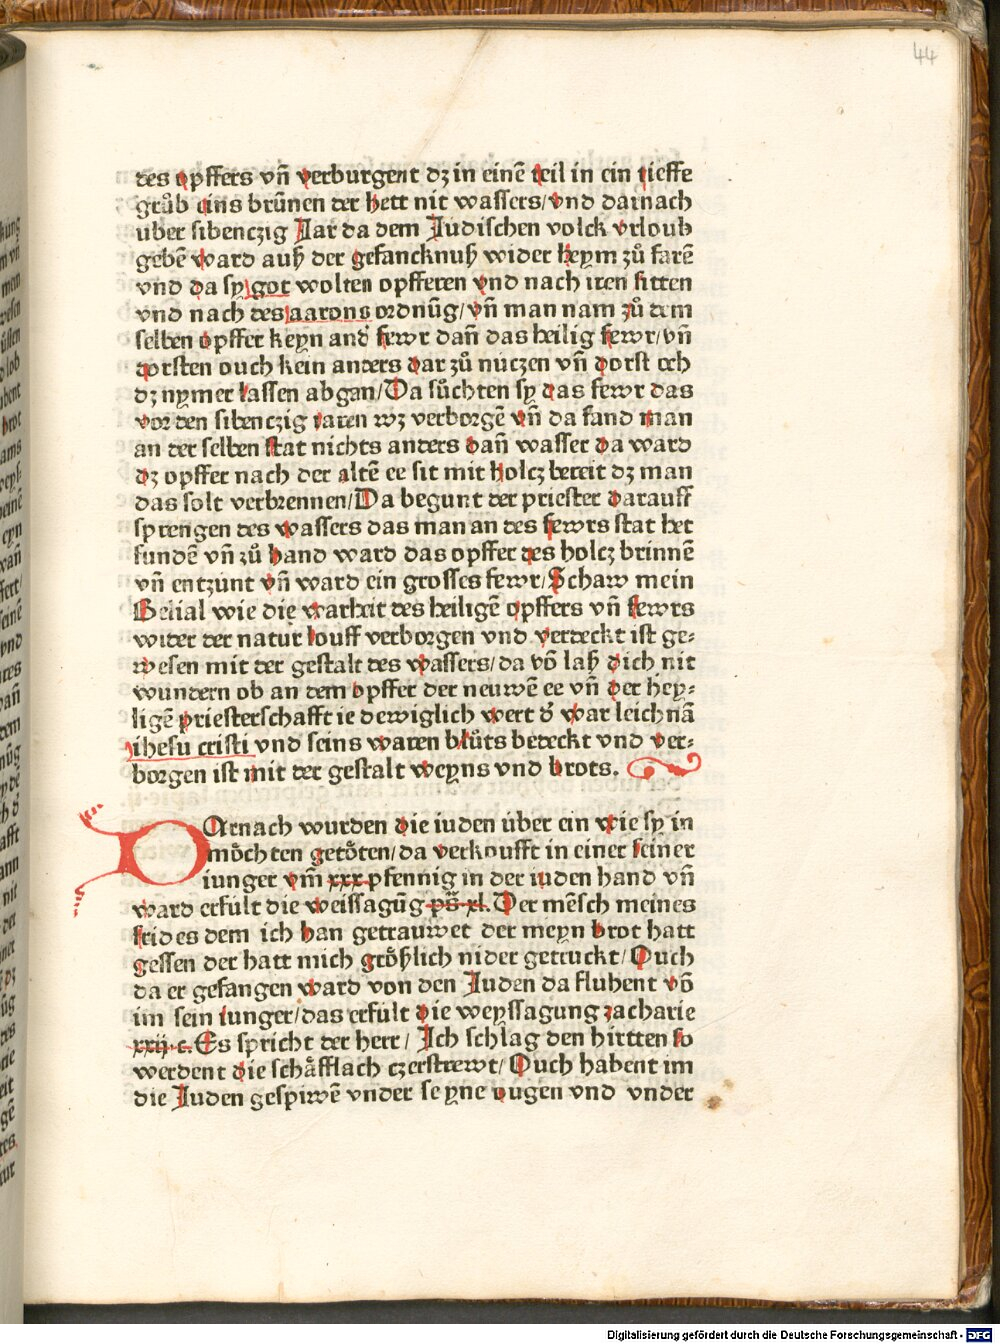 44
des opffers vn̄ verburgent dz in einē teil in ein tieffe
grůb eins brūnen der hett nit wassers/vnd darnach
über sibenczig Jar da dem Jüdischen volck vrloub
gebē ward auß der gefancknuß wider heym zů farē
vnd da sy got wolten opfferen vnd nach iren sitten
vnd nach des aarons ordnūg/vn̄ man nam zů dem
selben opffer keyn and̓ fewr dan̄ das heilig fewr/vn̄
dorsten ouch kein anders dar zů nüczen vn̄ dorst och
dz nymer lassen abgan/Da sůchten sy das fewr das
vor den sibenczig iaren wz verborgē vn̄ da fand man
an der selben stat nichts anders dan̄ wasser da ward
dz opffer nach der altē ee sit mit holcz bereit dz man
das solt verbrennen/Da begunt der priester darauff
sprengen des wassers das man an des fewrs stat het
fundē vn̄ zů hand ward das opffer des holcz brinnē
vn̄ entzünt vn̄ ward ein grosses fewr/Schaw mein
Belial wie die warheit des heiligē opffers vn̄ fewrs
wider der natur louff verborgen vnd verdeckt ist ge⸗
wesen mit der gestalt des wassers/da vō laß dich nit
wundern ob an dem opffer der neuwē ee vn̄ der hey⸗
ligē priesterschafft ie dewiglich wert d̓ war leichnā
ihesu cristi vnd seins waren blůts bedeckt vnd ver⸗
borgen ist mit der gestalt weyns vnd brots.
DArnach wurden die iuden über ein wie sy in
möchten getöten/da verkoufft in einer seiner
iunger vm̄ xxx pfennig in der iuden hand vn̄
ward erfült die weissagūg ps̄ xl. Der mēsch meines
frides dem ich han getrauwet der meyn brot hatt
gessen der hatt mich größlich nider getruckt/Ouch
da er gefangen ward von den Juden da fluhent vō
im sein iunger/das erfült die weyssagung zacharie
xxij c. Es spricht der herr/ Jch schlag den hirtten so
werdent die schäfflach czerstrewt/Ouch habent im
die Juden gespiwē vnder seyne ougen vnd vnder
Digitalisierung gefördert durch die Deutsche Forschungsgemeinschaft - DFG